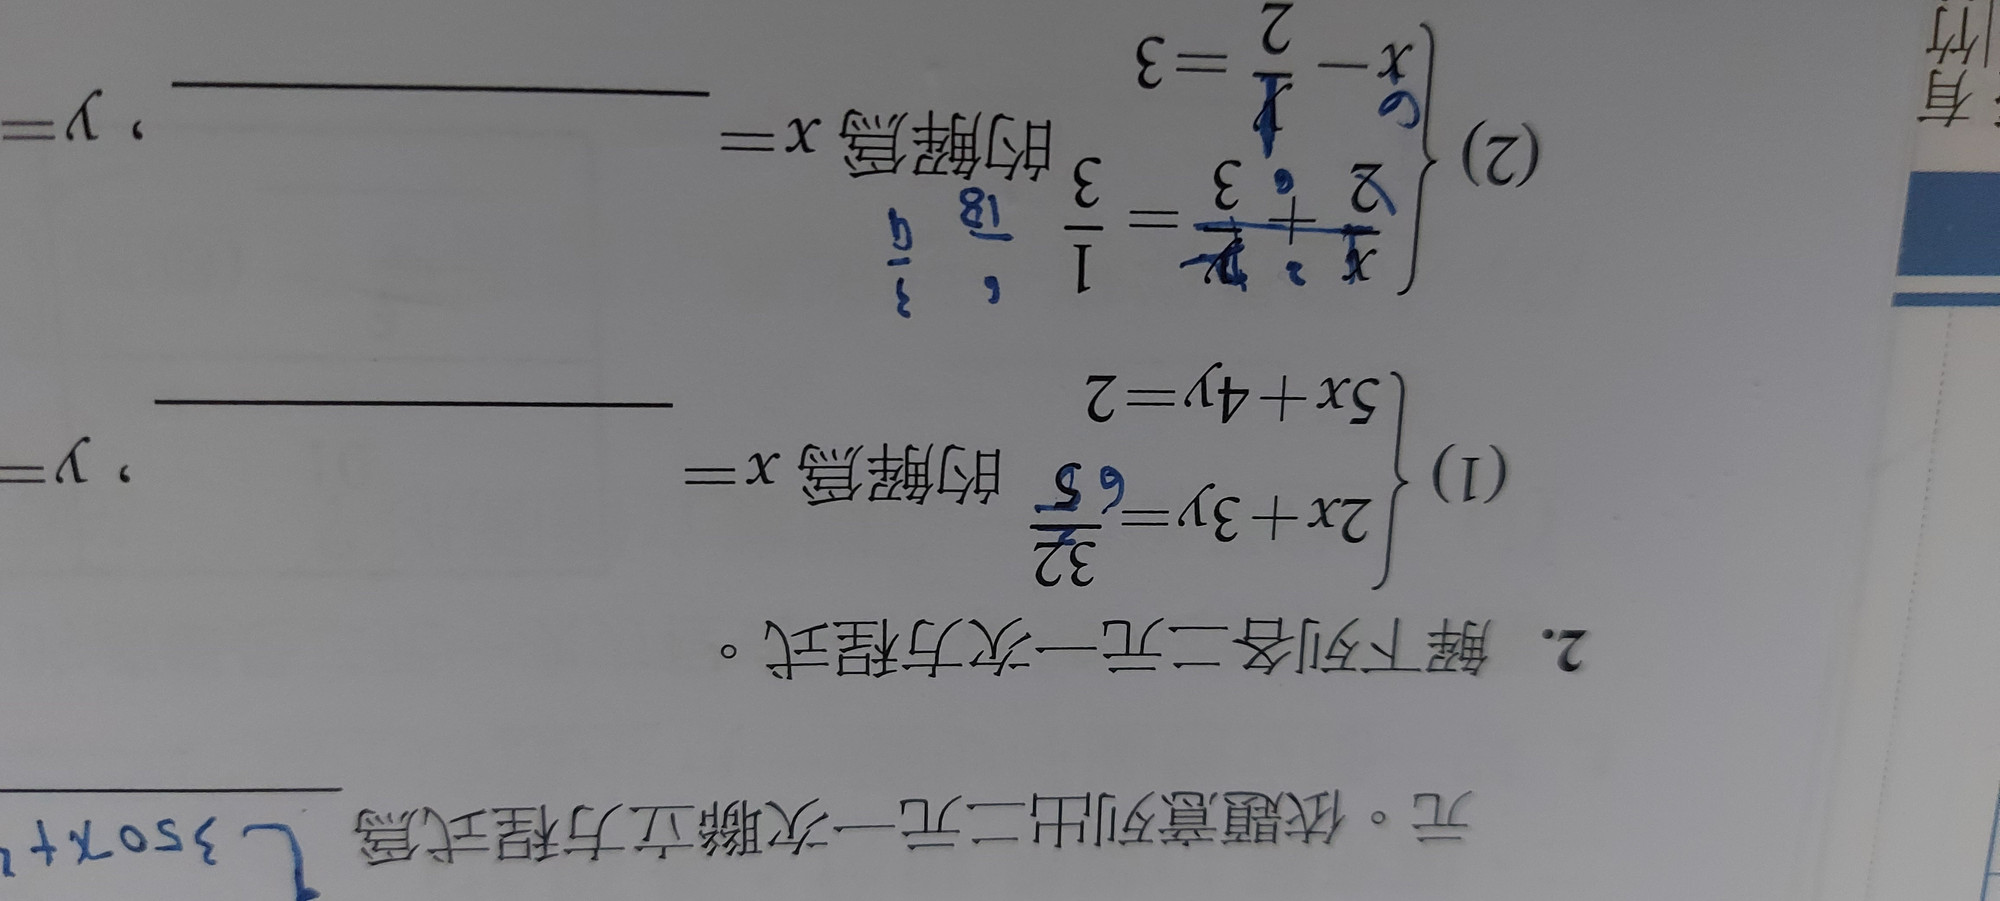 元。依題意列出二元一次聯立方程式為 350x+
2. 解下列各二元一次方程式。
(1) { 2x+3y=32/65
5x+4y=2 的解為 x= ，y=
(2) { x/2 + y/3 = 1/3
x - y/2 = 3 的解為 x= ，y=
6/18 3/9
6
有
竹